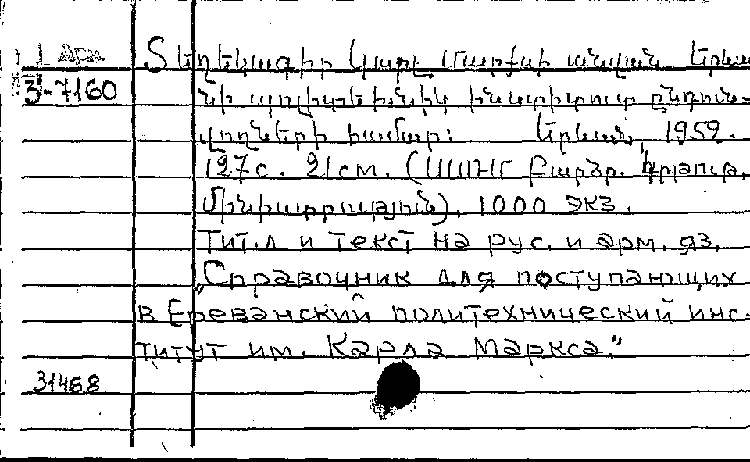 1 Арм
З-7160
Տեղեկագիր Կարլ Մարքսի անվան Երևա
նի պոլիտեխնիկ ինստիտուտ ընդուն-
վողների համար: Երևան, 1959.
127с. 21см. (ՍՍՀՄ Բարձր. կրթութ.
Մինիստրություն). 1000 экз.
Тит.л и текст на рус. и арм. яз.
„Справочник для поступающих
в Ереванский политехнический инс-
титут им. Карла Маркса."
31468